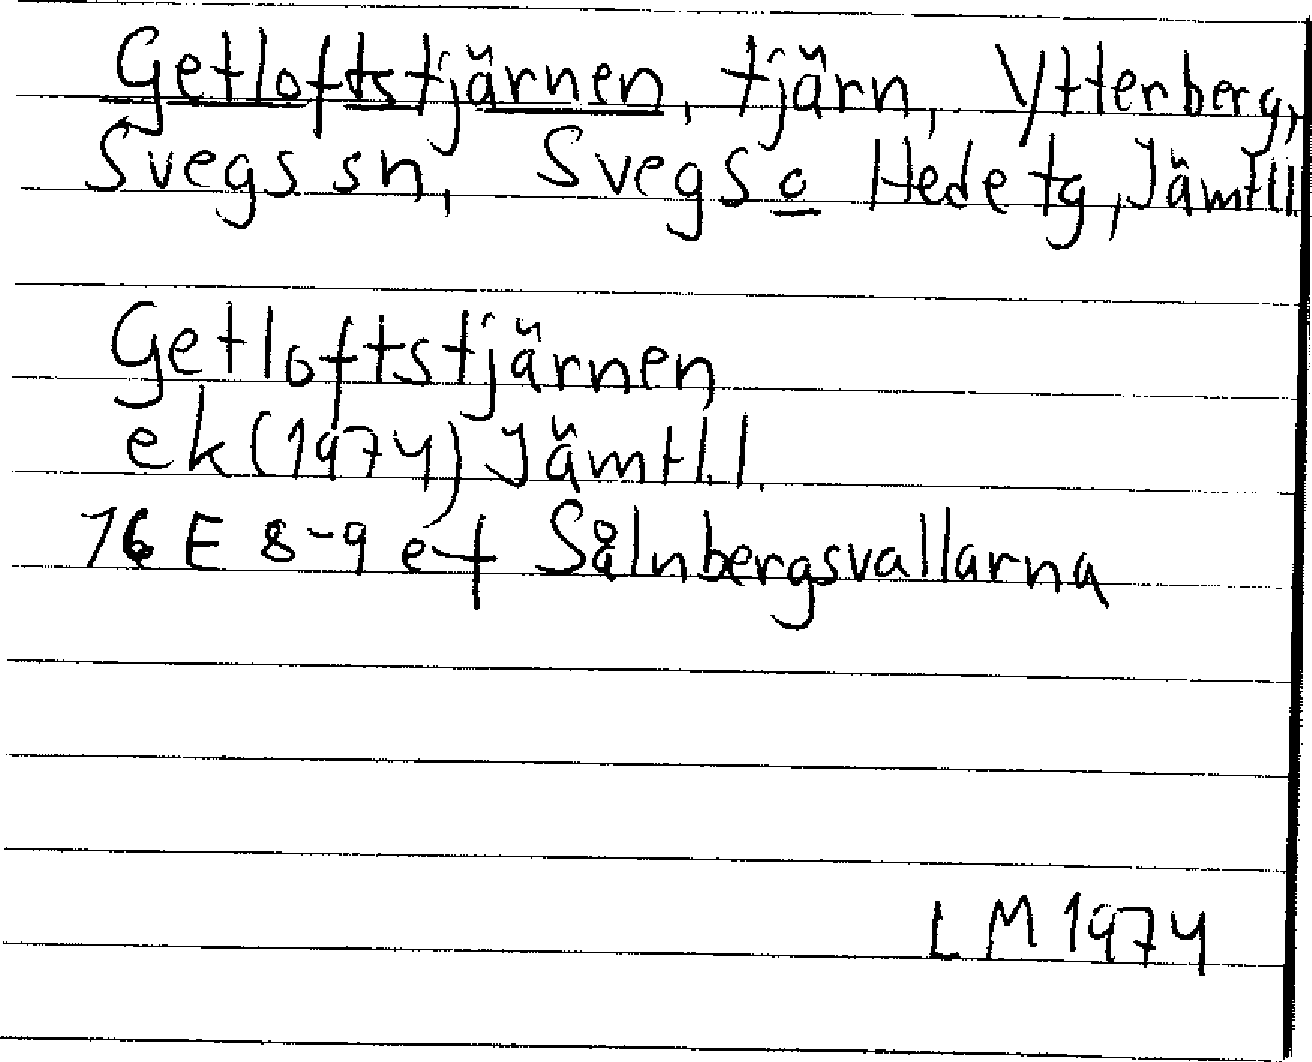 Getloftstjärnen, tjärn, Ytterberg,
Svegs sn, Svegs o Hede tg, Jämtl l
Getloftstjärnen
ek (1974) Jämtl.l.
16 E 8-9 ef Sålnbergsvallarna
LM 1974